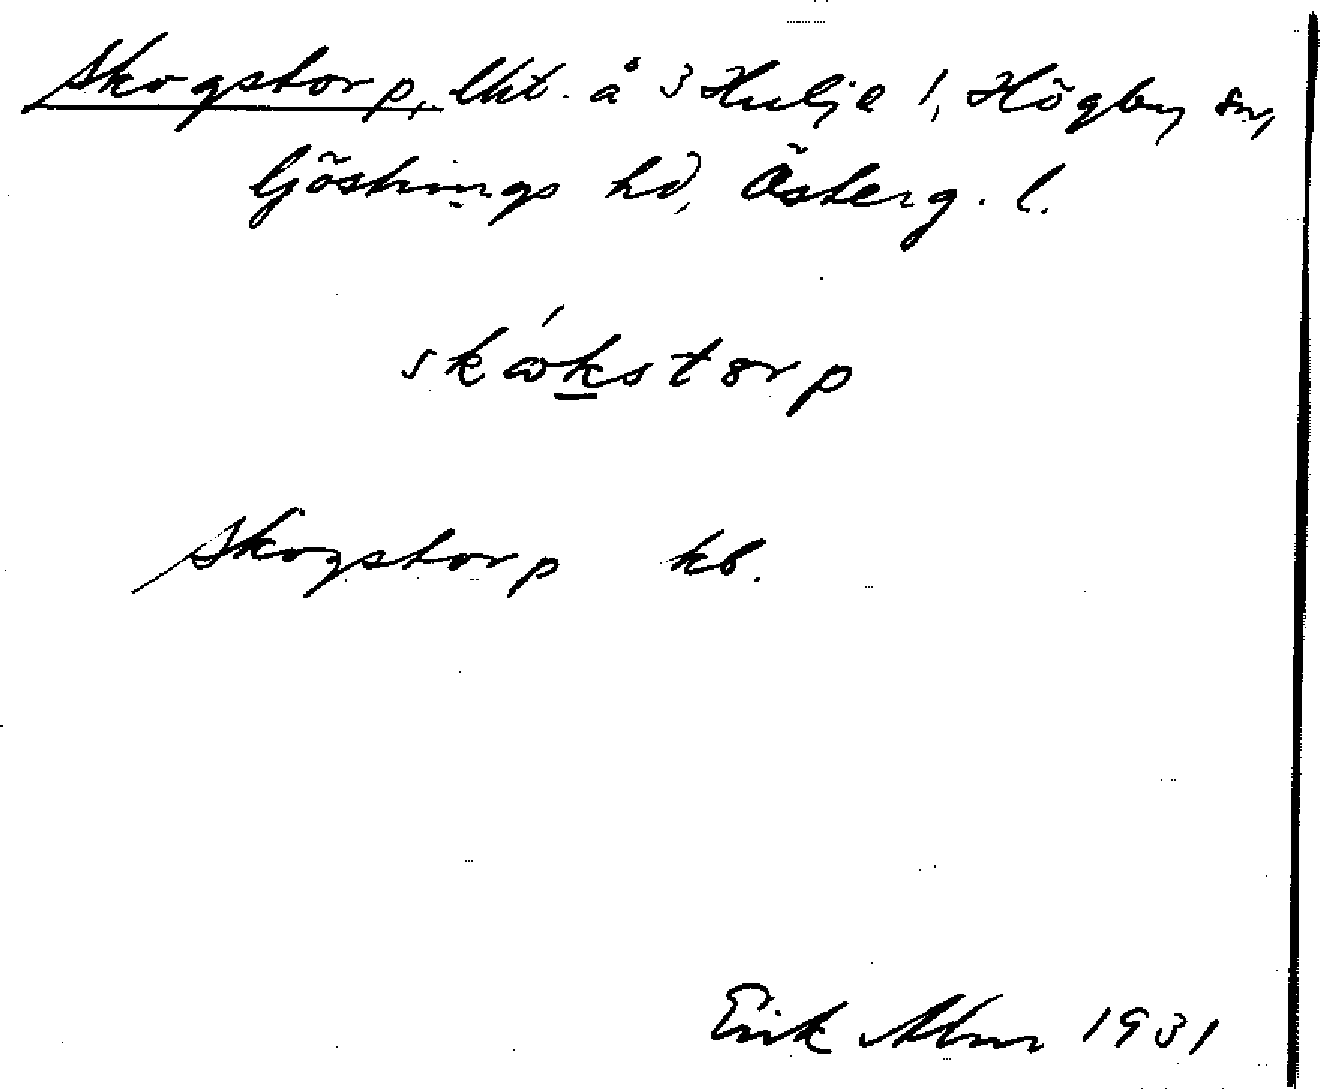 Skogstorp, lht. å 3 Hulje 1, Högby sn,
Göstrings hd, Österg. l.
skókstorp
Skogstorp kb.
Erik Alm 1931